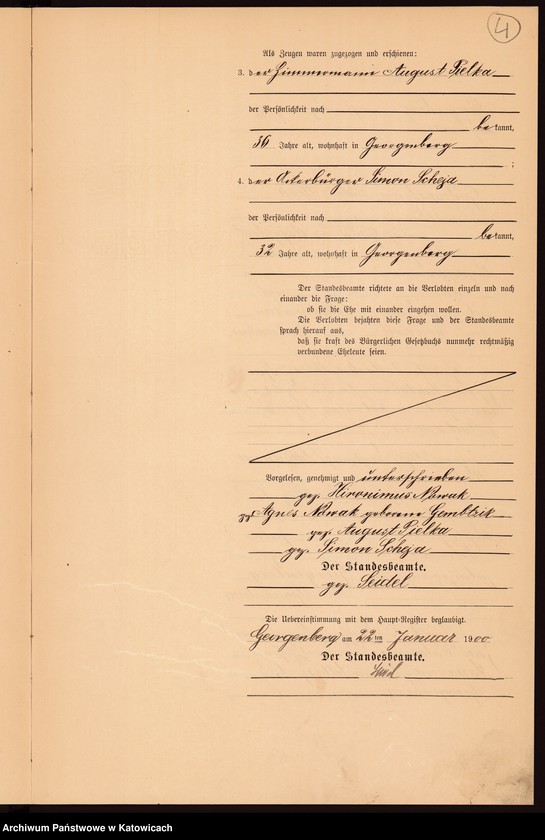 4
Als Zeugen waren zugezogen und erschienen:
3. der Zimmermann August Pielka
der Persönlichkeit nach
bekannt,
36 Jahre alt, wohnhaft in Georgenberg
4. der Ackerbürger Simon Scheja
der Persönlichkeit nach
bekannt,
32 Jahre alt, wohnhaft in Georgenberg
Der Standesbeamte richtete an die Verlobten einzeln und nach
einander die Frage:
ob sie die Ehe mit einander eingehen wollen.
Die Verlobten bejahten diese Frage und der Standesbeamte
sprach hierauf aus,
daß sie kraft des Bürgerlichen Gesetzbuchs nunmehr rechtmäßig
verbundene Eheleute seien.
Vorgelesen, genehmigt und unterschrieben
gez. Hironimus Nowak
gez. Agnes Nowak geborene Gembtzik
gez. August Pielka
gez. Simon Scheja
Der Standesbeamte.
gez. Seidel
Die Uebereinstimmung mit dem Haupt-Register beglaubigt.
Georgenberg am 22ten Januar 1900
Der Standesbeamte.
Archiwum Państwowe w Katowicach